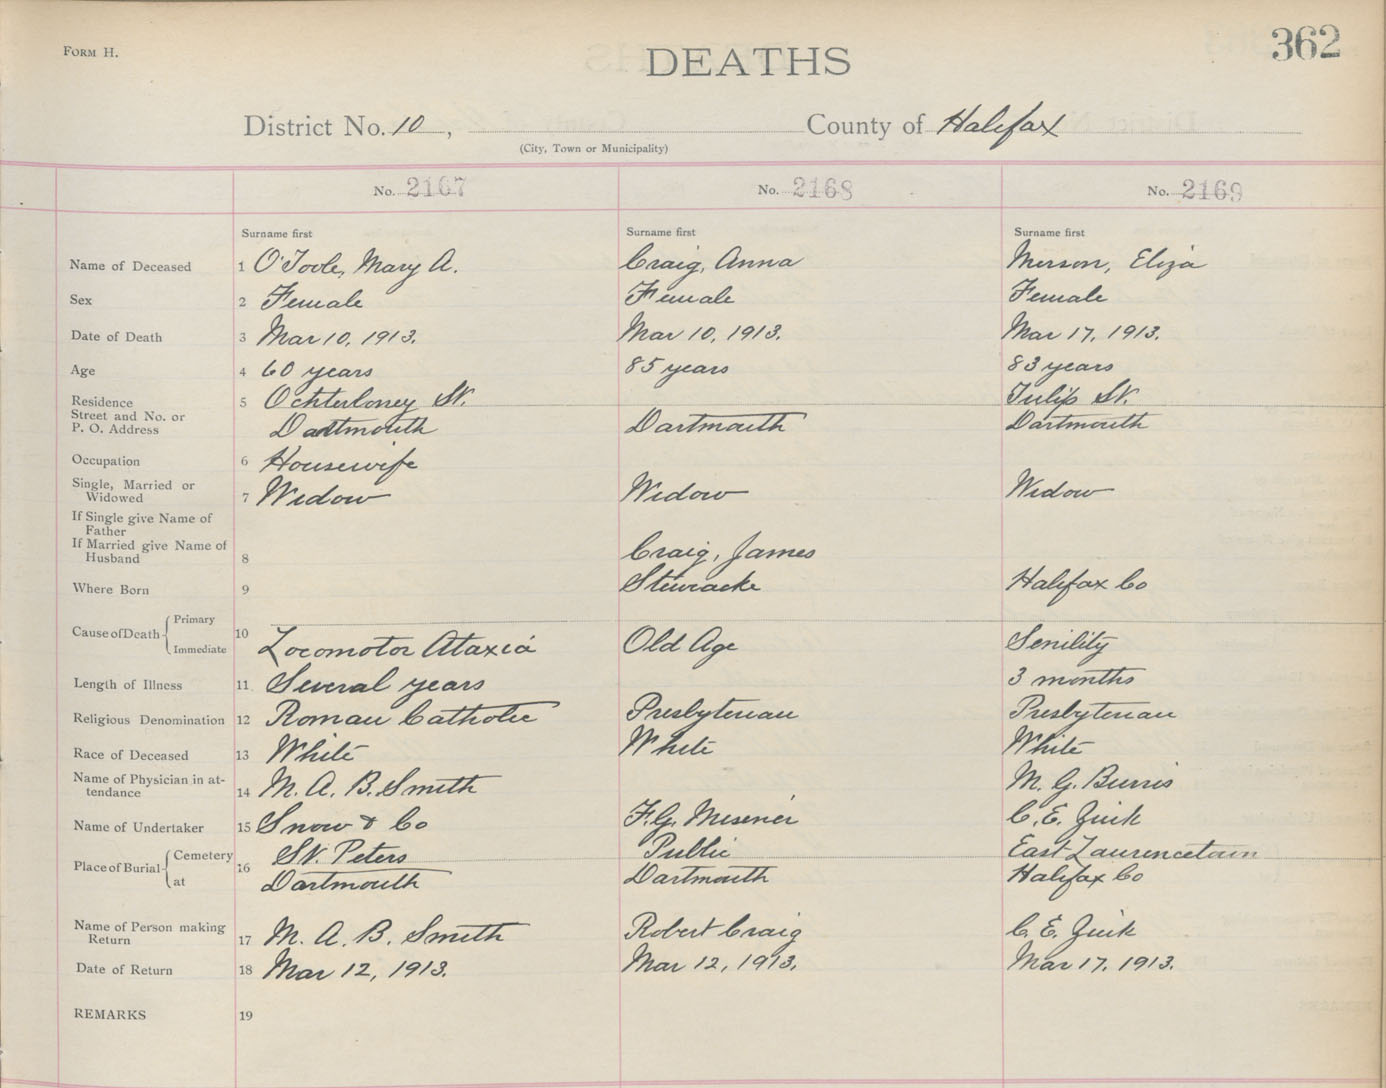 FORM H.
362
DEATHS
District No. 10, County of Halifax
(City, Town or Municipality)
No. 2167 No. 2168 No. 2169
Surname first Surname first Surname first
Name of Deceased 1 O'Toole, Mary A. Craig, Anna Merson, Eliza
Sex 2 Female Female Female
Date of Death 3 Mar 10, 1913. Mar 10, 1913. Mar 17, 1913.
Age 4 60 years 85 years 83 years
Residence 5 Ochterloney St. Tulip St.
Street and No. or
P. O. Address Dartmouth Dartmouth Dartmouth
Occupation 6 Housewife
Single, Married or
Widowed 7 Widow Widow Widow
If Single give Name of
Father
If Married give Name of
Husband 8 Craig, James
Where Born 9 Stewiacke Halifax Co
Cause of Death Primary
Immediate 10 Locomotor Ataxia Old Age Senility
Length of Illness 11 Several years 3 months
Religious Denomination 12 Roman Catholic Presbyterian Presbyterian
Race of Deceased 13 White White White
Name of Physician in at-
tendance 14 M. A. B. Smith M. G. Burris
Name of Undertaker 15 Snow & Co F. G. Misener C. E.
Place of Burial Cemetery 16 St. Peters Public East Laurencetown
at Dartmouth Dartmouth Halifax Co
Name of Person making
Return 17 M. A. B. Smith Robert Craig C. E.
Date of Return 18 Mar 12, 1913. Mar 12, 1913. Mar 17, 1913.
REMARKS 19